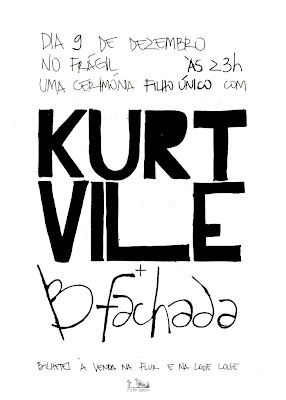 DIA 9 DE DEZEMBRO
NO FRÁGIL ÀS 23h
UMA CERIMÓNIA FILHO ÚNICO COM
KURT
VILE
+
B fachada
BILHETES À VENDA NA FLUR E NA LOUIE LOUIE